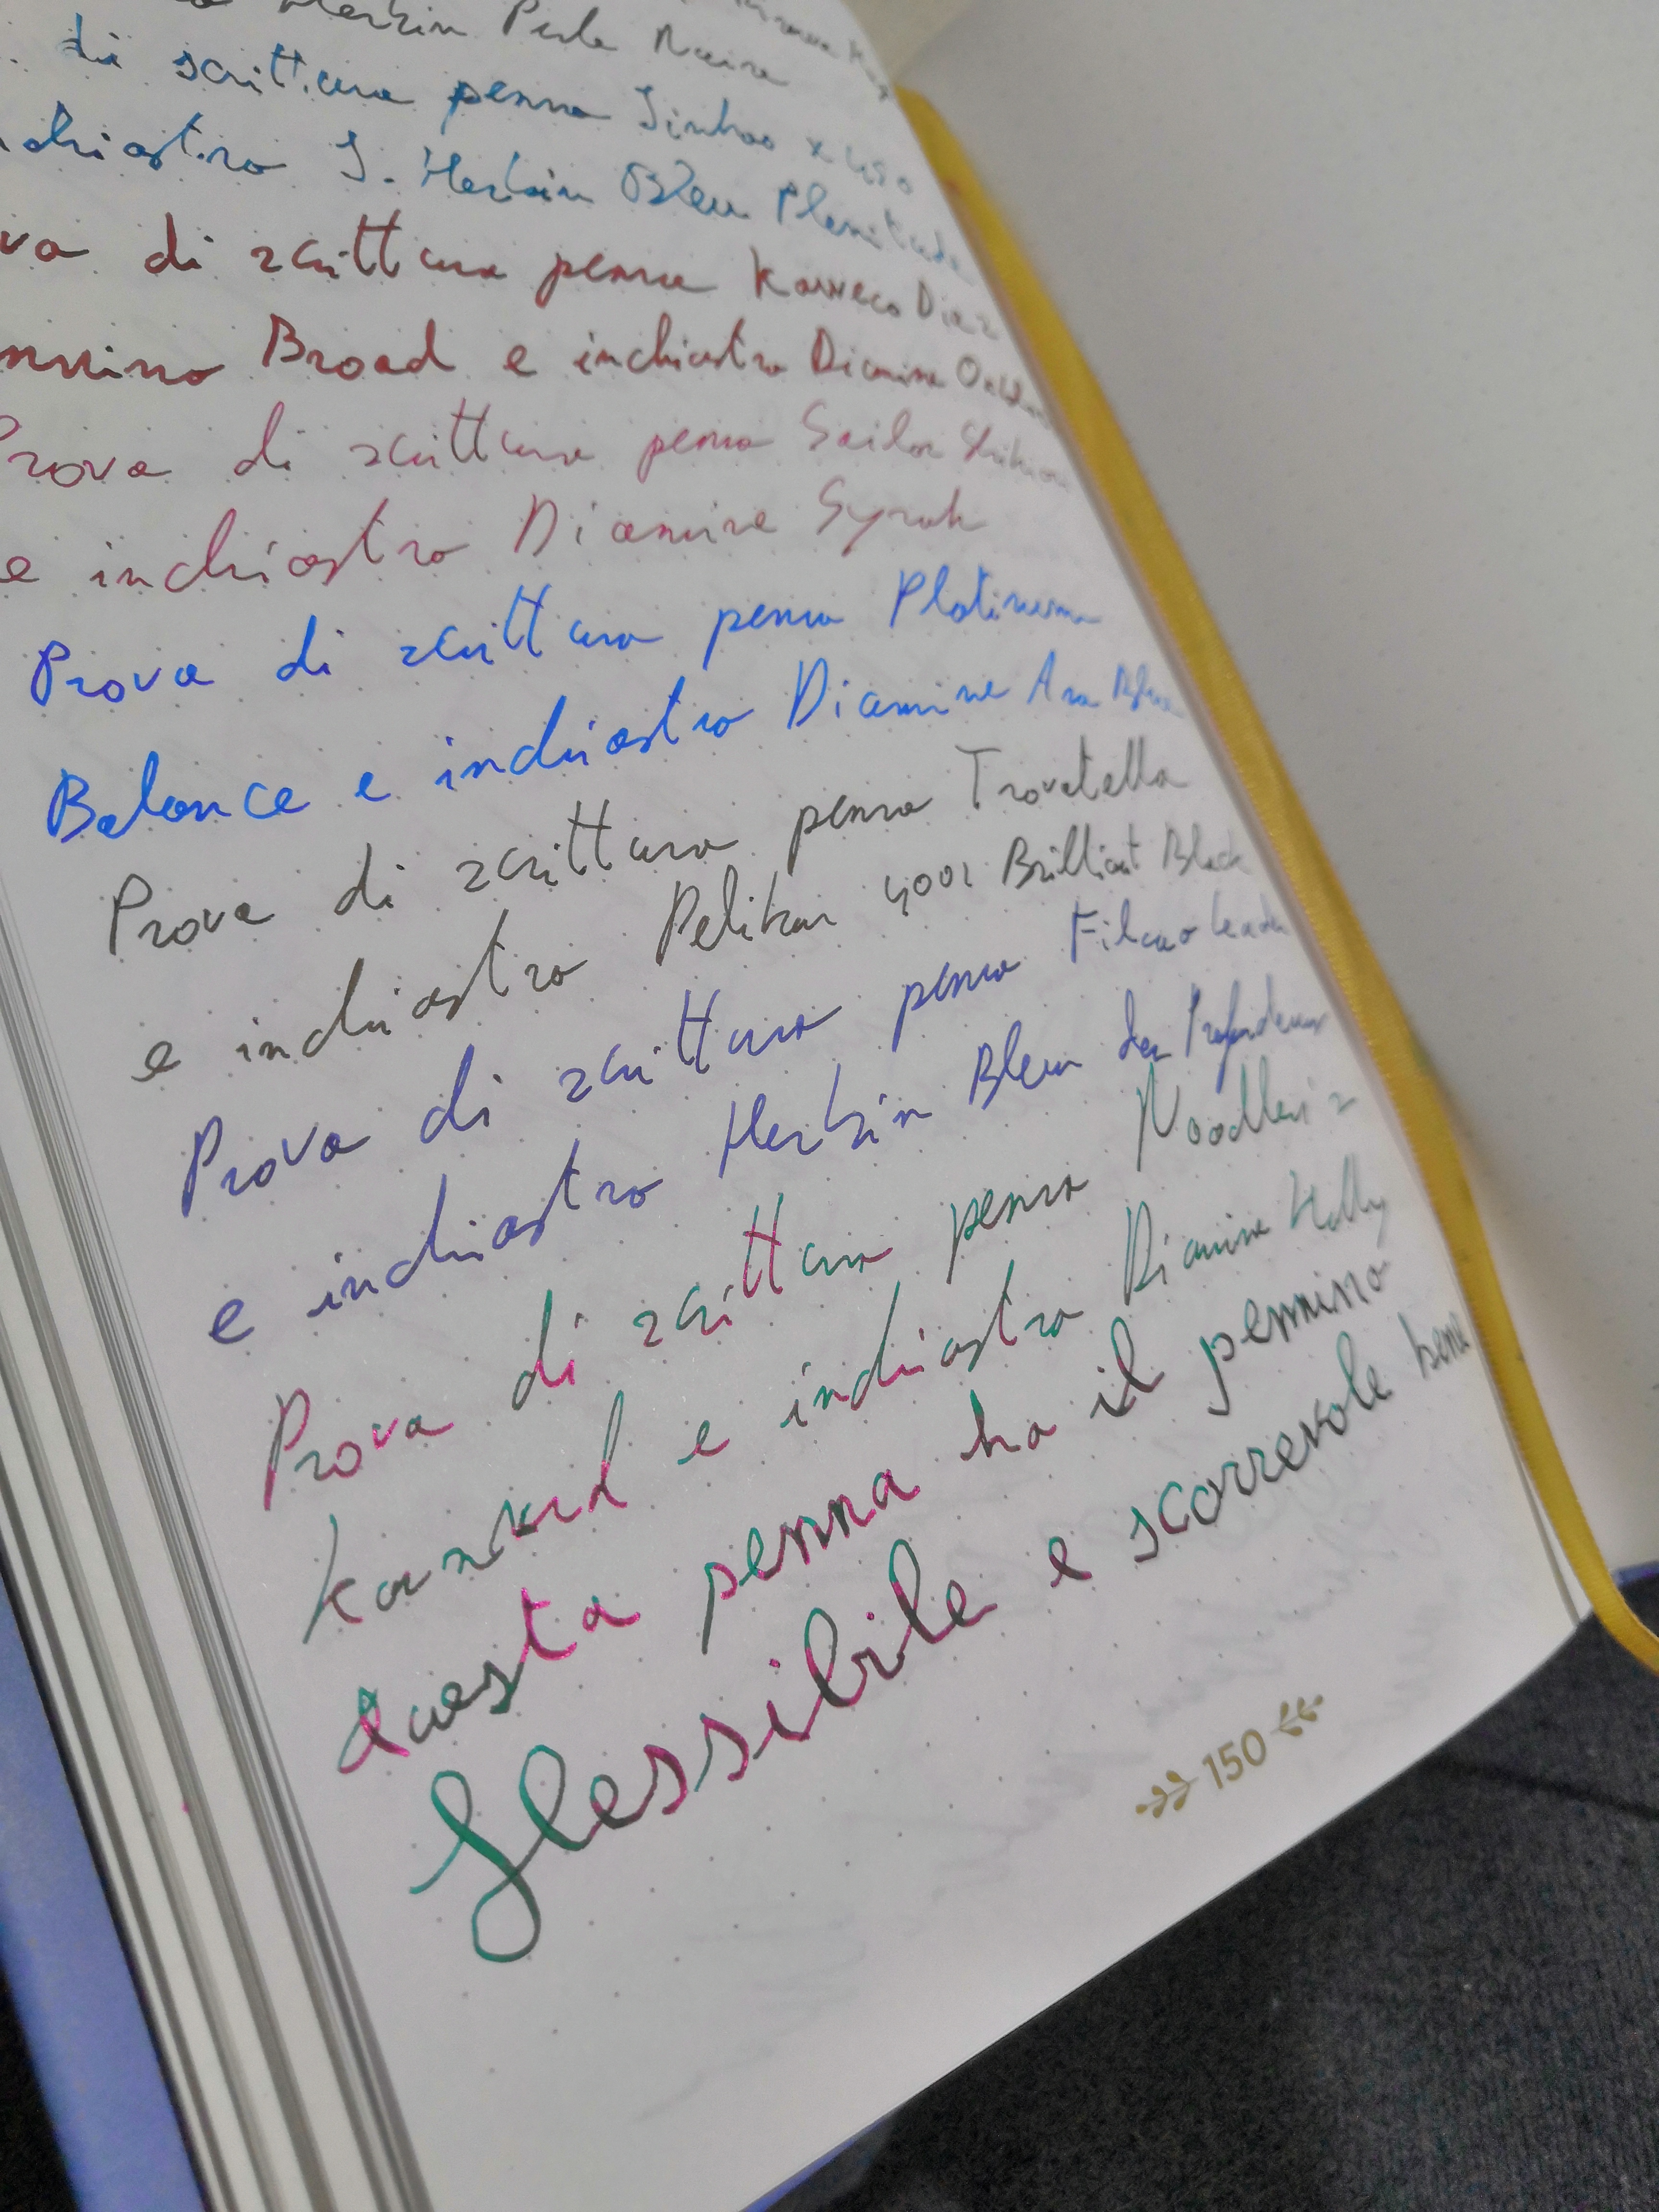 Herbin Perle Noire
di scrittura penna Jinhao x450
inchiostro J. Herbin Bleu Plenitude
di scrittura penna Kaweco
pennino Broad e inchiostro Diamine
Prova di scrittura penna Sailor
e inchiostro Diamine Syrah
Prova di scrittura penna Platinum
Balance e inchiostro Diamine
Prova di scrittura penna Trovatella
e inchiostro Pelikan 4001 Brilliant Black
Prova di scrittura penna Filcao
e inchiostro Herbin Bleu des Profondeurs
Prova di scrittura penna Noodler's
Konrad e inchiostro Diamine Holly
Questa penna ha il pennino
flessibile e scorrevole bene
150